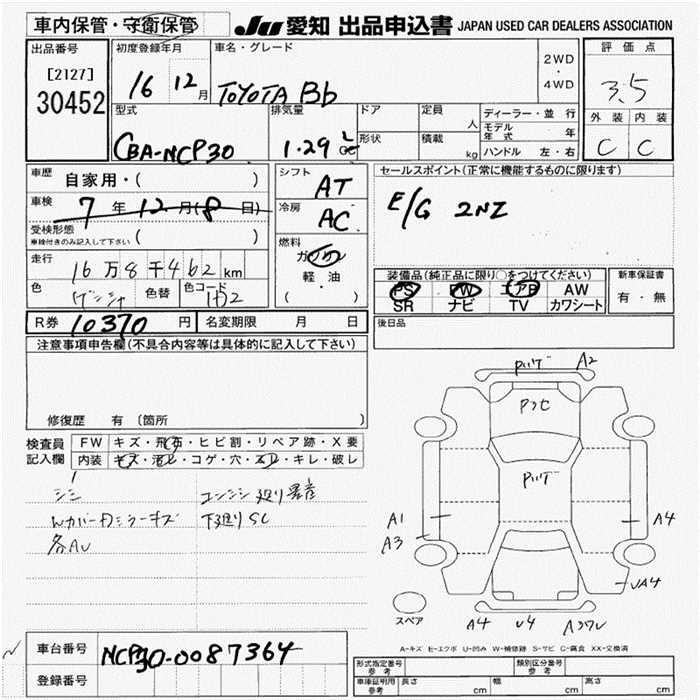 車内保管・守衛保管
JU 愛知 出品申込書 JAPAN USED CAR DEALERS ASSOCIATION
出品番号
[2127]
30452
初度登録年月
16 12月
車名・グレード
TOYOTA Bb
2WD
・
4WD
評価点
3.5
外装 内装
C C
型式
CBA-NCP30
排気量
1.29 L
cc
ドア
形状
定員
人
積載
kg
ディーラー・並行
モデル年式 年
ハンドル 左・右
車歴 自家用・( )
車検 7年12月(8日)
受検形態
車検付きのみ記入して下さい ( )
走行 16万8千462km
色 色替 色コード
シフト
AT
冷房
AC
燃料
ガソリン
軽・油
( )
セールスポイント(正常に機能するものに限ります)
E/G 2NZ
装備品(純正品に限り○をつけてください)
PS PW エアB AW
SR ナビ TV カワシート
新車保証書
有・無
R券 10370円 名変期限 月 日
後日品
注意事項申告欄(不具合内容等は具体的に記入して下さい)
修復歴 有 〔箇所 〕
検査員記入欄
FW キズ・飛石・ヒビ割・リペア跡・X要
内装 キズ・汚レ・コゲ・穴・スレ・キレ・破レ
シミ
Wカバー ドアミラーキズ 下廻りSC
各AU
A2
A1
A3
A4
UA4
スペア
A4 U4
A-キズ E-エクボ U-凹み W-補修跡 S-サビ C-腐食 XX-交換済
車台番号 NCP30-0087364
登録番号
形式指定番号
参考
類別区分番号
参考
車庫証明用
参考
長さ cm 幅 cm 高さ cm